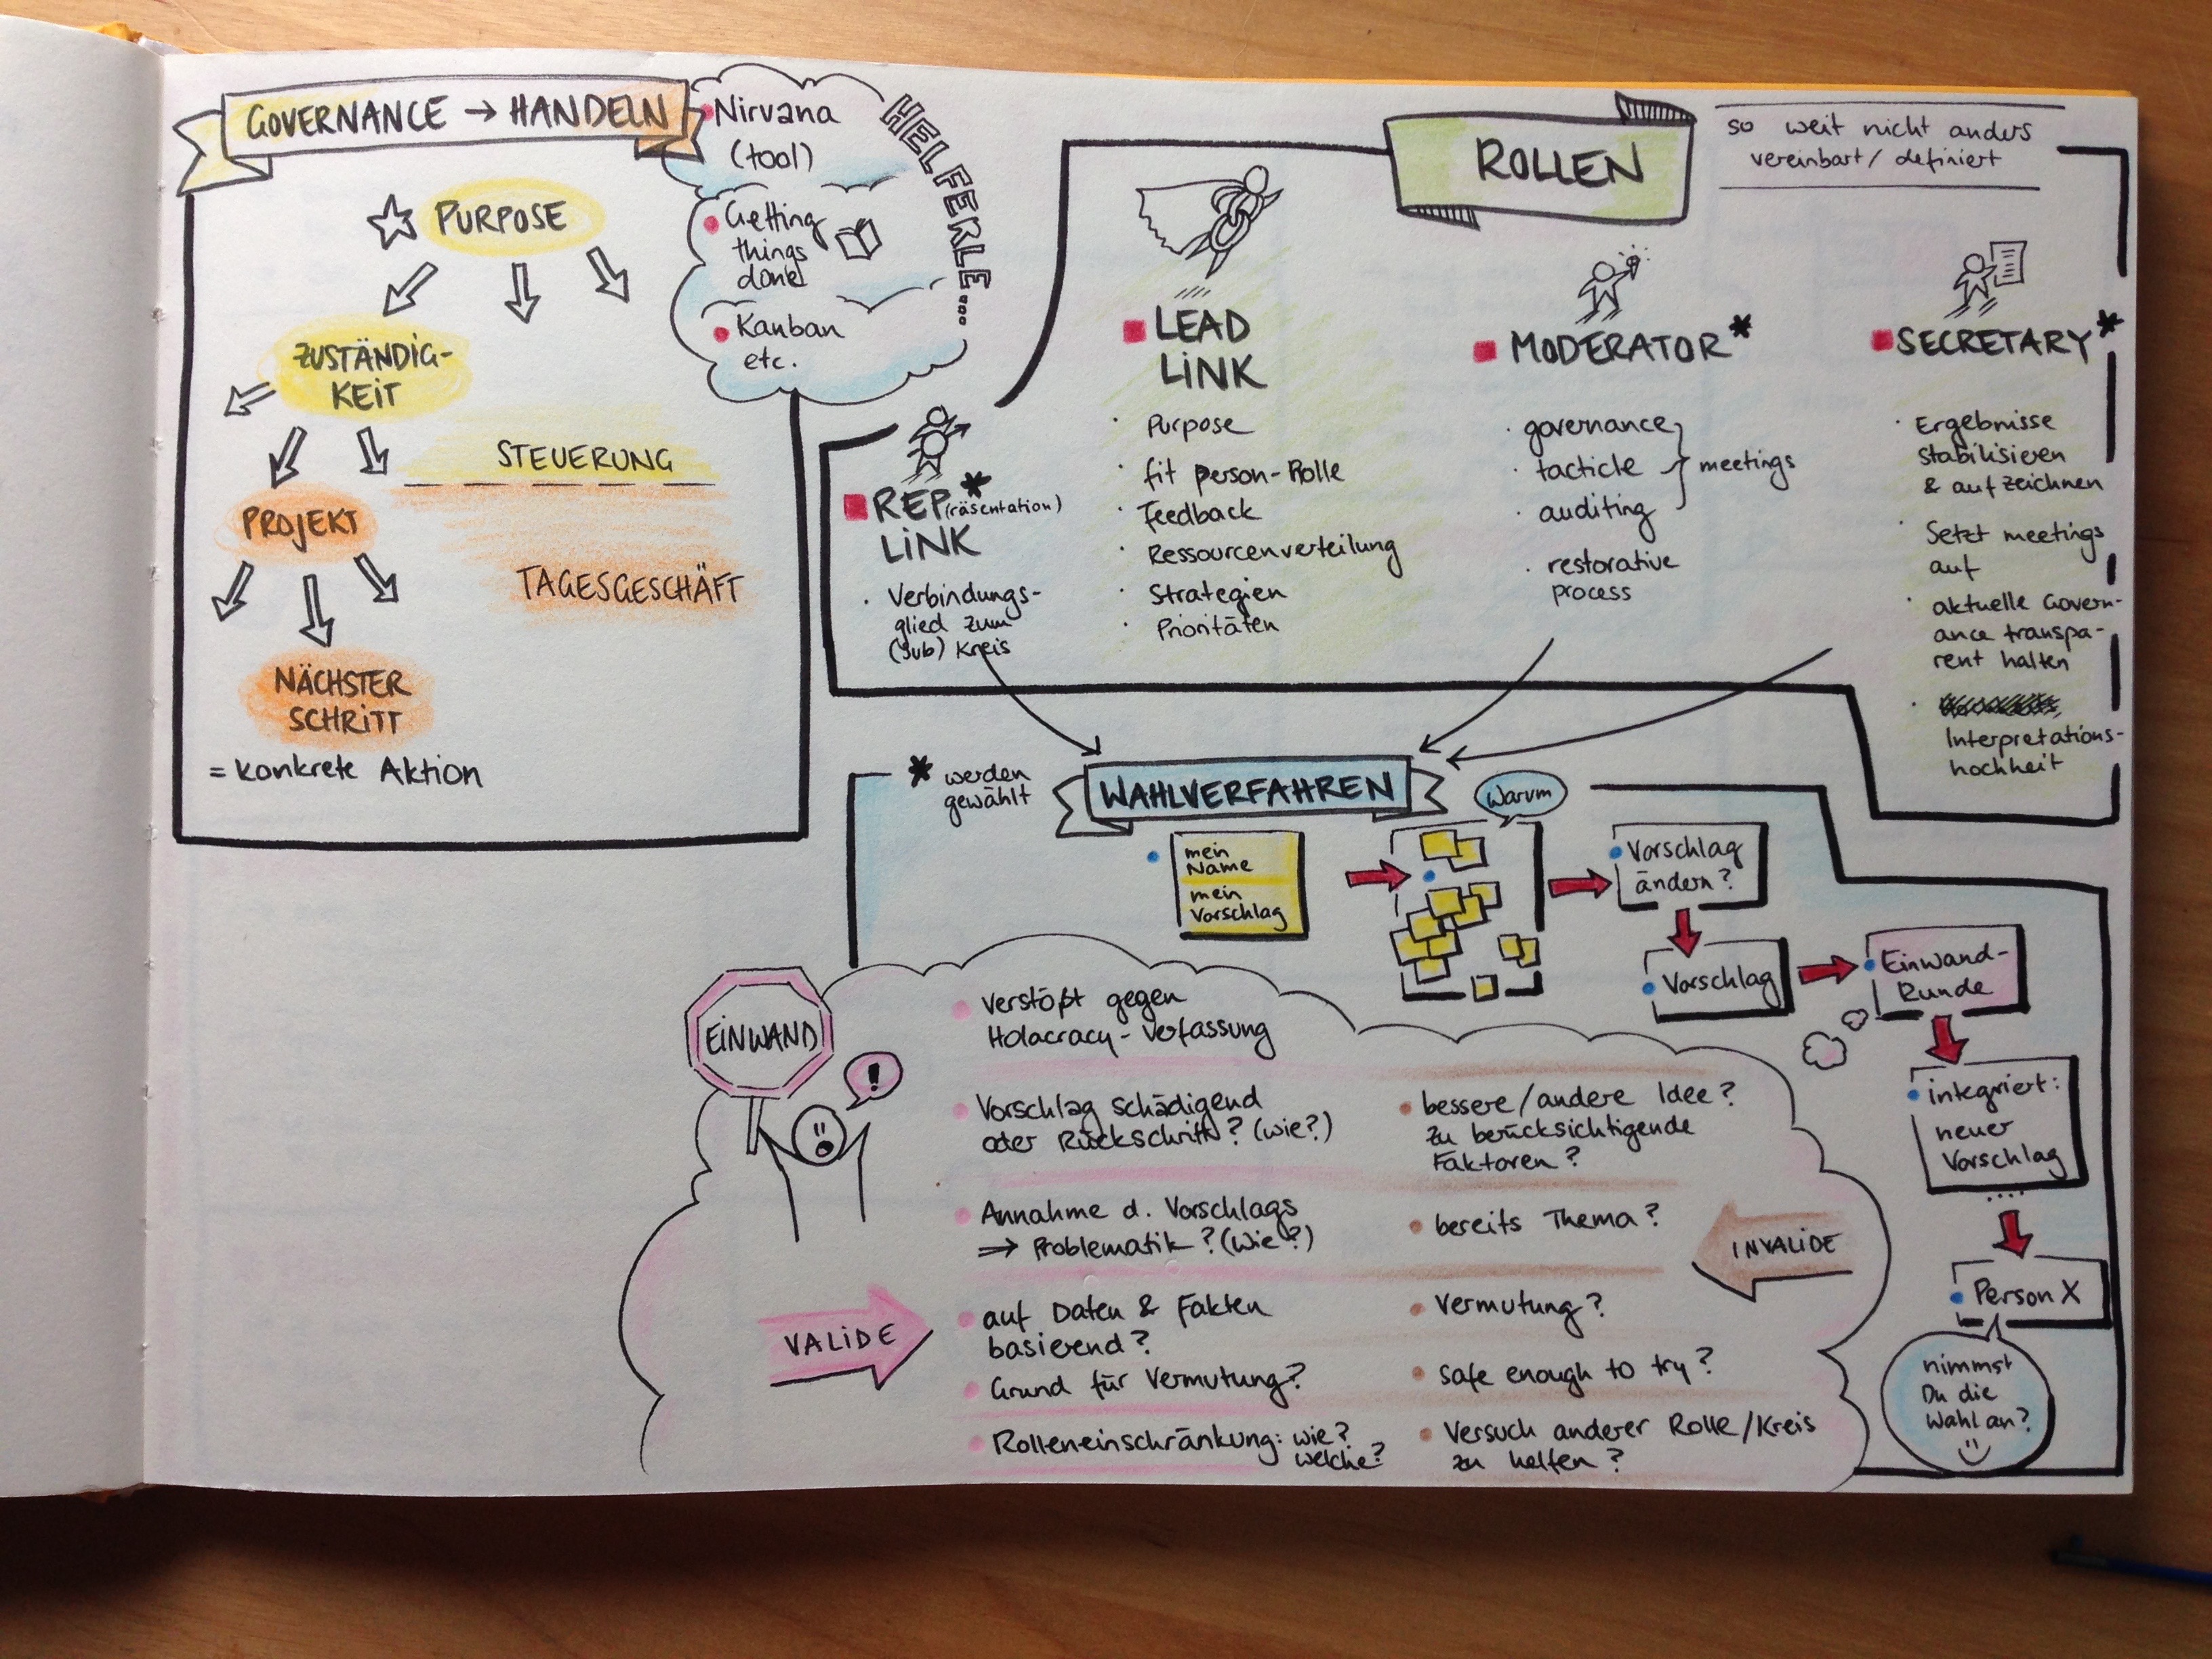 GOVERNANCE → HANDELN
☆ PURPOSE
ZUSTÄNDIG-
KEIT
STEUERUNG
PROJEKT
TAGESGESCHÄFT
NÄCHSTER
SCHRITT
= konkrete Aktion
HELFERLE...
Nirvana
(tool)
Getting
things
done
Kanban
etc.
ROLLEN
so weit nicht anders
vereinbart / definiert
REP(räsentation)*
LINK
· Verbindungs-
glied zum
(sub) Kreis
LEAD
LINK
· Purpose
· fit person-Rolle
· Feedback
· Ressourcenverteilung
· Strategien
· Prioritäten
MODERATOR*
· governance
· tacticle } meetings
· auditing
· restorative
process
SECRETARY*
· Ergebnisse
stabilisieren
& aufzeichnen
· Setzt meetings
auf
· aktuelle Govern-
ance transpa-
rent halten
· Interpretations-
hochheit
* werden
gewählt
WAHLVERFAHREN
mein
Name
mein
Vorschlag
Warum
Vorschlag
ändern?
Vorschlag
Einwand-
Runde
integriert:
neuer
Vorschlag
....
Person X
nimmst
Du die
Wahl an?
EINWAND
!
VALIDE
verstößt gegen
Holacracy-Verfassung
Vorschlag schädigend
oder Rückschritt? (wie?)
Annahme d. Vorschlags
⇒ Problematik? (Wie?)
auf Daten & Fakten
basierend?
Grund für Vermutung?
Rolleneinschränkung: wie?
welche?
INVALIDE
bessere/andere Idee?
zu berücksichtigende
Faktoren?
bereits Thema?
Vermutung?
safe enough to try?
Versuch anderer Rolle/Kreis
zu helfen?